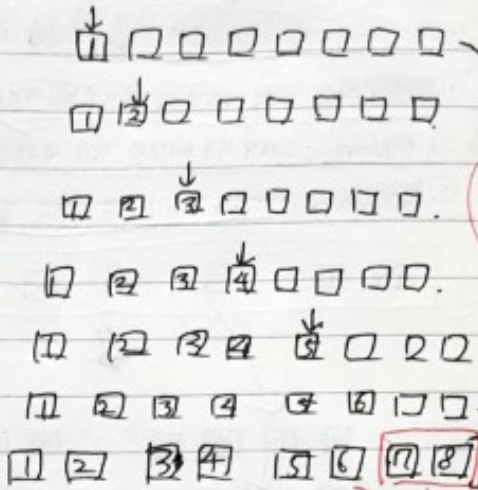 1
1 2
1 2 3
1 2 3 4
1 2 3 4 5
1 2 3 4 5 6
1 2 3 4 5 6 7 8